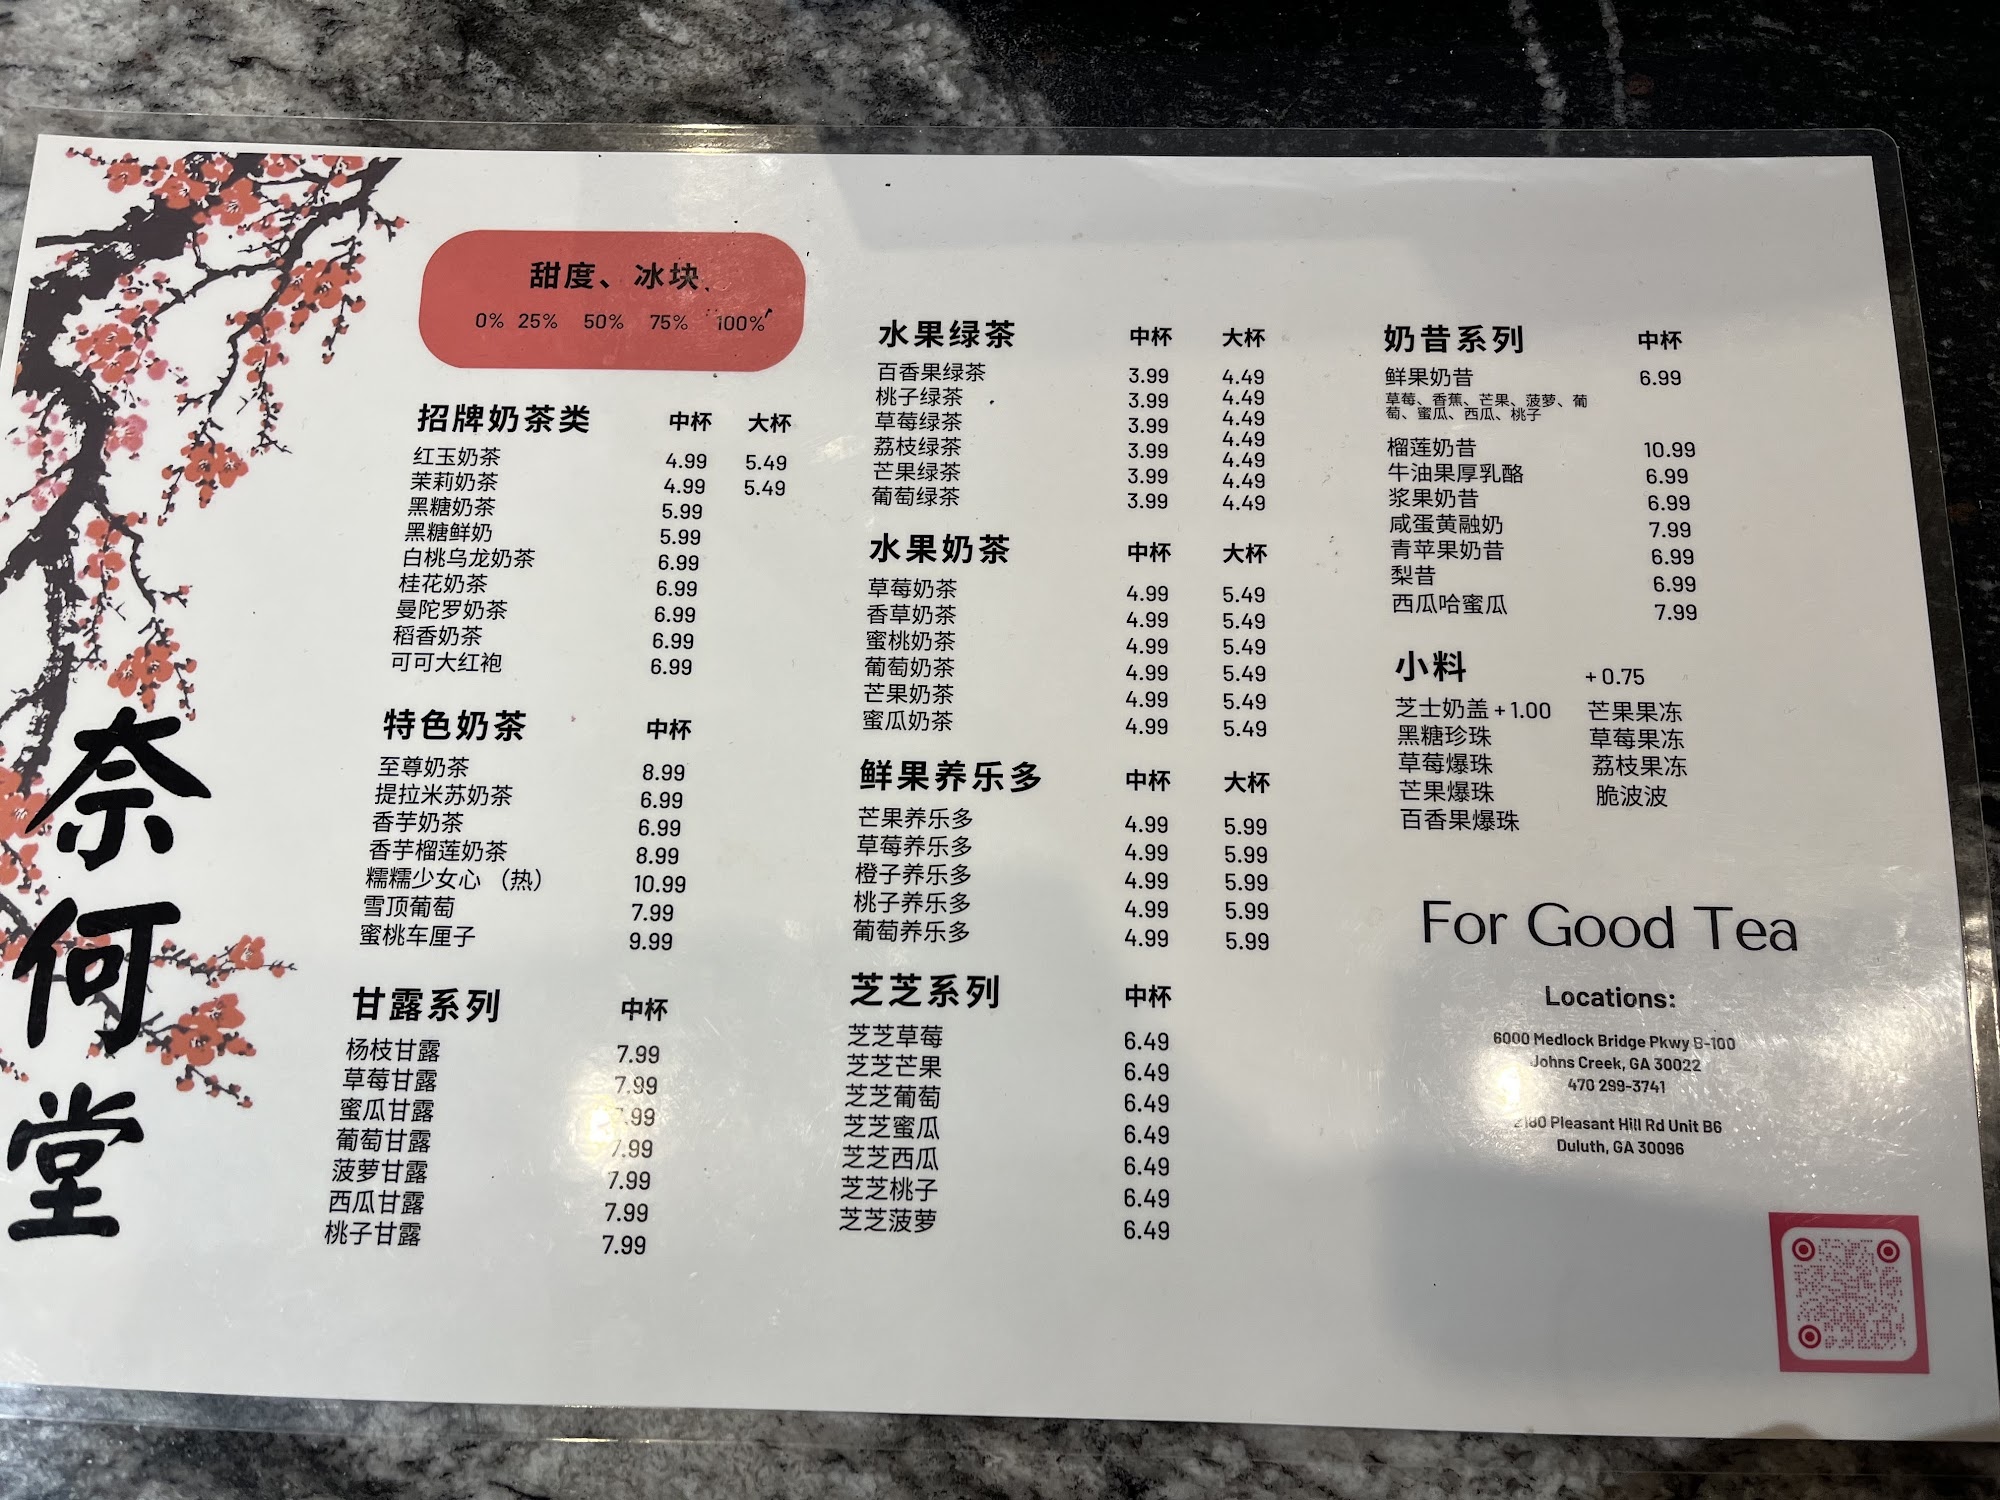 奈何堂
甜度、冰块
0% 25% 50% 75% 100%
招牌奶茶类 中杯 大杯
红玉奶茶 4.99 5.49
茉莉奶茶 4.99 5.49
黑糖奶茶 5.99
黑糖鲜奶 5.99
白桃乌龙奶茶 6.99
桂花奶茶 6.99
曼陀罗奶茶 6.99
稻香奶茶 6.99
可可大红袍 6.99
特色奶茶 中杯
至尊奶茶 8.99
提拉米苏奶茶 6.99
香芋奶茶 6.99
香芋榴莲奶茶 8.99
糯糯少女心 （热） 10.99
雪顶葡萄 7.99
蜜桃车厘子 9.99
甘露系列 中杯
杨枝甘露 7.99
草莓甘露 7.99
蜜瓜甘露 .99
葡萄甘露 7.99
菠萝甘露 7.99
西瓜甘露 7.99
桃子甘露 7.99
水果绿茶 中杯 大杯
百香果绿茶 3.99 4.49
桃子绿茶 3.99 4.49
草莓绿茶 3.99 4.49
4.49
荔枝绿茶 3.99 4.49
芒果绿茶 3.99 4.49
葡萄绿茶 3.99 4.49
水果奶茶 中杯 大杯
草莓奶茶 4.99 5.49
香草奶茶 4.99 5.49
蜜桃奶茶 4.99 5.49
葡萄奶茶 4.99 5.49
芒果奶茶 4.99 5.49
蜜瓜奶茶 4.99 5.49
鲜果养乐多 中杯 大杯
芒果养乐多 4.99 5.99
草莓养乐多 4.99 5.99
橙子养乐多 4.99 5.99
桃子养乐多 4.99 5.99
葡萄养乐多 4.99 5.99
芝芝系列 中杯
芝芝草莓 6.49
芝芝芒果 6.49
芝芝葡萄 6.49
芝芝蜜瓜 6.49
芝芝西瓜 6.49
芝芝桃子 6.49
芝芝菠萝 6.49
奶昔系列 中杯
鲜果奶昔 6.99
草莓、香蕉、芒果、菠萝、葡
萄、蜜瓜、西瓜、桃子
榴莲奶昔 10.99
牛油果厚乳酪 6.99
浆果奶昔 6.99
咸蛋黄融奶 7.99
青苹果奶昔 6.99
梨昔 6.99
西瓜哈蜜瓜 7.99
小料 + 0.75
芝士奶盖 + 1.00 芒果果冻
黑糖珍珠 草莓果冻
草莓爆珠 荔枝果冻
芒果爆珠 脆波波
百香果爆珠
For Good Tea
Locations:
6000 Medlock Bridge Pkwy B-100
Johns Creek, GA 30022
470 299-3741
Pleasant Hill Rd Unit B6
Duluth, GA 30096